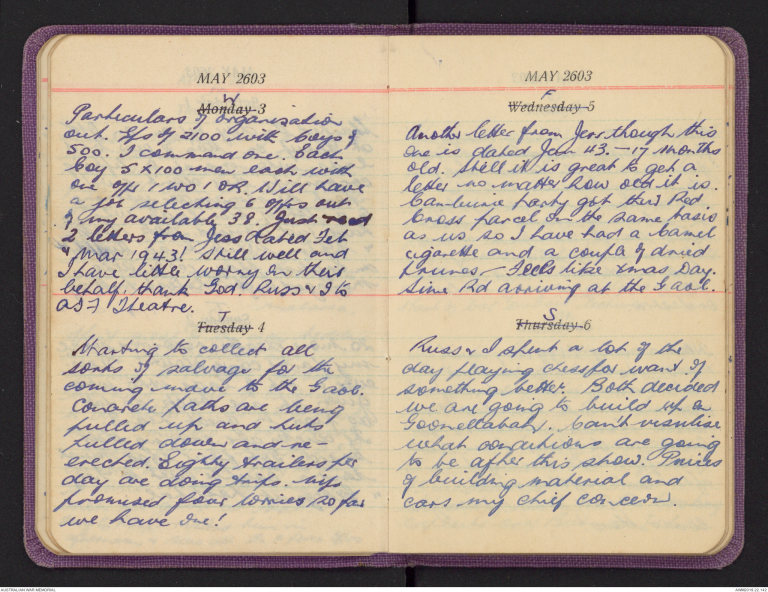 MAY 2603
W
Monday 3
Particulars of organisation
out. Gps of 2100 with Coys of
500. I command one. Each
Coy 5 x 100 men each with
one off 1 WO 1 OR. Will have
a job selecting 6 offrs out
of my available 38. Just read
2 letters from Jess dated Feb
" Mar 1943! Still well and
I have little worry on their
behalf thank God. Russ & I to
Theatre.
T
Tuesday 4
Starting to collect all
sorts of salvage for the
coming move to the Gaol.
Concrete paths are being
pulled up and huts
pulled down and re-
erected. Eighty trailers per
day are doing trips. Nips
promised four lorries so far
we have one!
MAY 2603
F
Wednesday 5
Another letter from Jess though this
one is dated Jan 43. - 17 months
old. Still it is great to get a
letter no matter how old it is.
party got their Red
Cross parcel on the same basis
as us so I have had a Camel
cigarette and a couple of dried
prunes - Feels like Xmas Day.
Rd arriving at the Gaol.
S
Thursday 6
Russ & I spent a lot of the
day playing chess for want of
something better. Both decided
we are going to build up on
Goonellabah. Can't visulise
what conditions are going
to be after this show. Prices
of building material and
cars my chief concern.
AUSTRALIAN WAR MEMORIAL
AWM2016.22.142